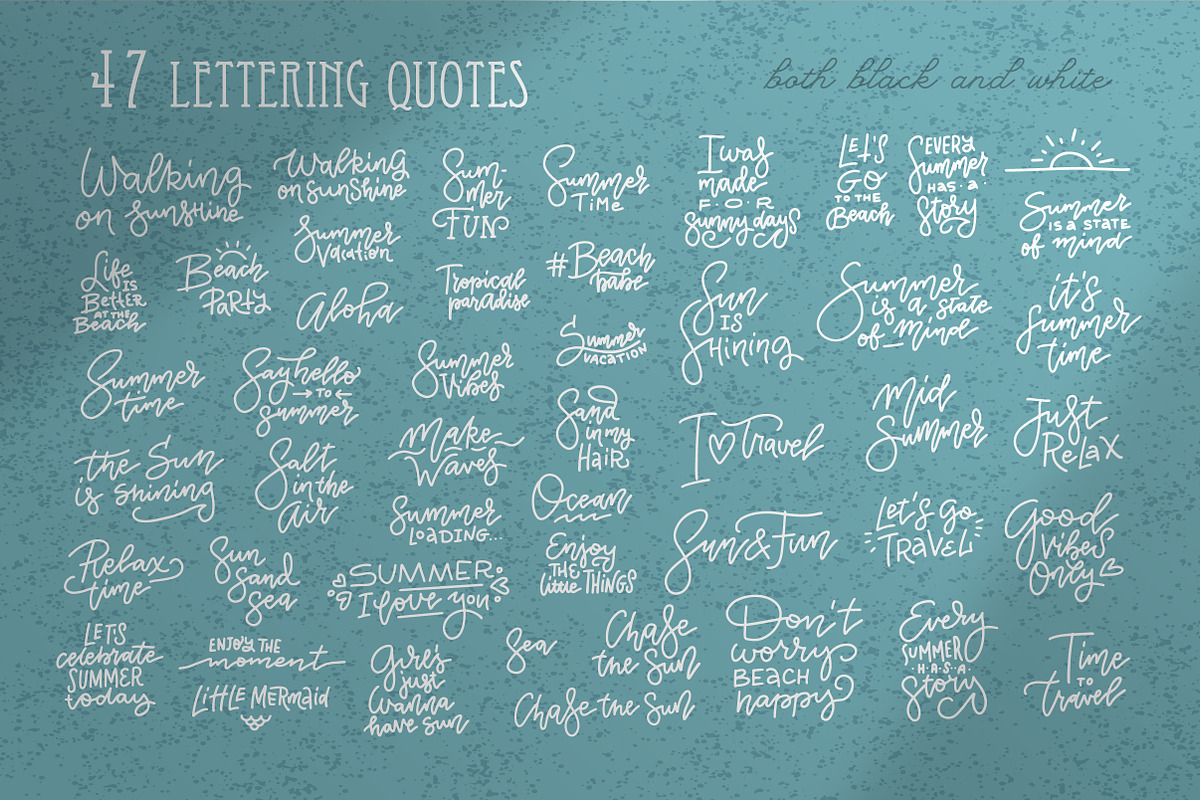 47 LETTERING QUOTES
both black and white
Walking
on sunshine
Walking
on sunshine
Sum-
mer
FUN
Summer
TiME
I was
made
F·O·R
sunny days
LET'S
GO
TO THE
Beach
EVERY
Summer
HAS·a·
Story
Summer
IS a STATE
of mind
Summer
Vacation
Life
IS
BeTTER
AT THE
Beach
Beach
PaRTY
Aloha
Tropical
paradise
#Beach
babe
Summer
VACATION
Sun
IS
SHining
Summer
is a state
of mind
it's
summer
time
Summer
time
Say hello
TO
summer
Summer
Vibes
Sand
in my
HaiR
I Travel
Mid
Summer
Just
ReLaX
the Sun
is shining
Salt
in the
air
Make
Waves
Summer
LOADING...
Ocean
Sun&Fun
Let's go
TRAVEL
Good
vibes
Only
Relax
time
Sun
Sand
Sea
SUMMER
I love you
Enjoy
THE
little THINGS
LETS
celebrate
SUMMER
today
ENJOY THE
moment
LiTTLE MERmaid
Girls
just
wanna
have sun
Sea
Chase
the Sun
Chase the Sun
Don't
worry
BEACH
happy
Every
SUMMER
·H·A·S·A·
Story
Time
TO
travel